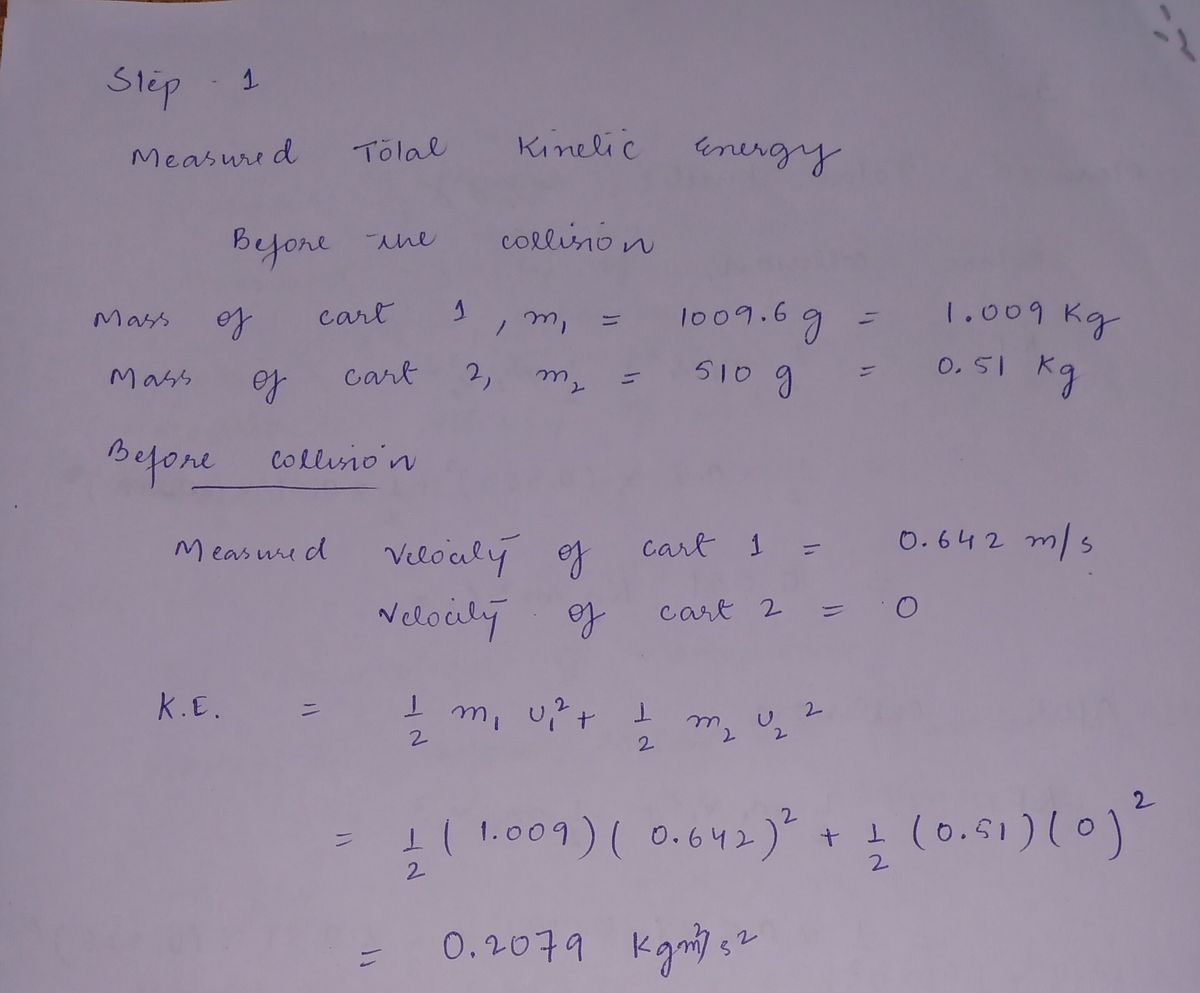 Step - 1
Measured Total Kinetic Energy
Before the collision
Mass of cart 1, m₁ = 1009.6 g = 1.009 Kg
Mass of cart 2, m₂ = 510 g = 0.51 Kg
Before collision
Measured Velocity of cart 1 = 0.642 m/s
Velocity of cart 2 = 0
K.E. = 1/2 m₁ υ₁² + 1/2 m₂ υ₂²
= 1/2 (1.009)(0.642)² + 1/2 (0.51)(0)²
= 0.2079 Kgm²/s2